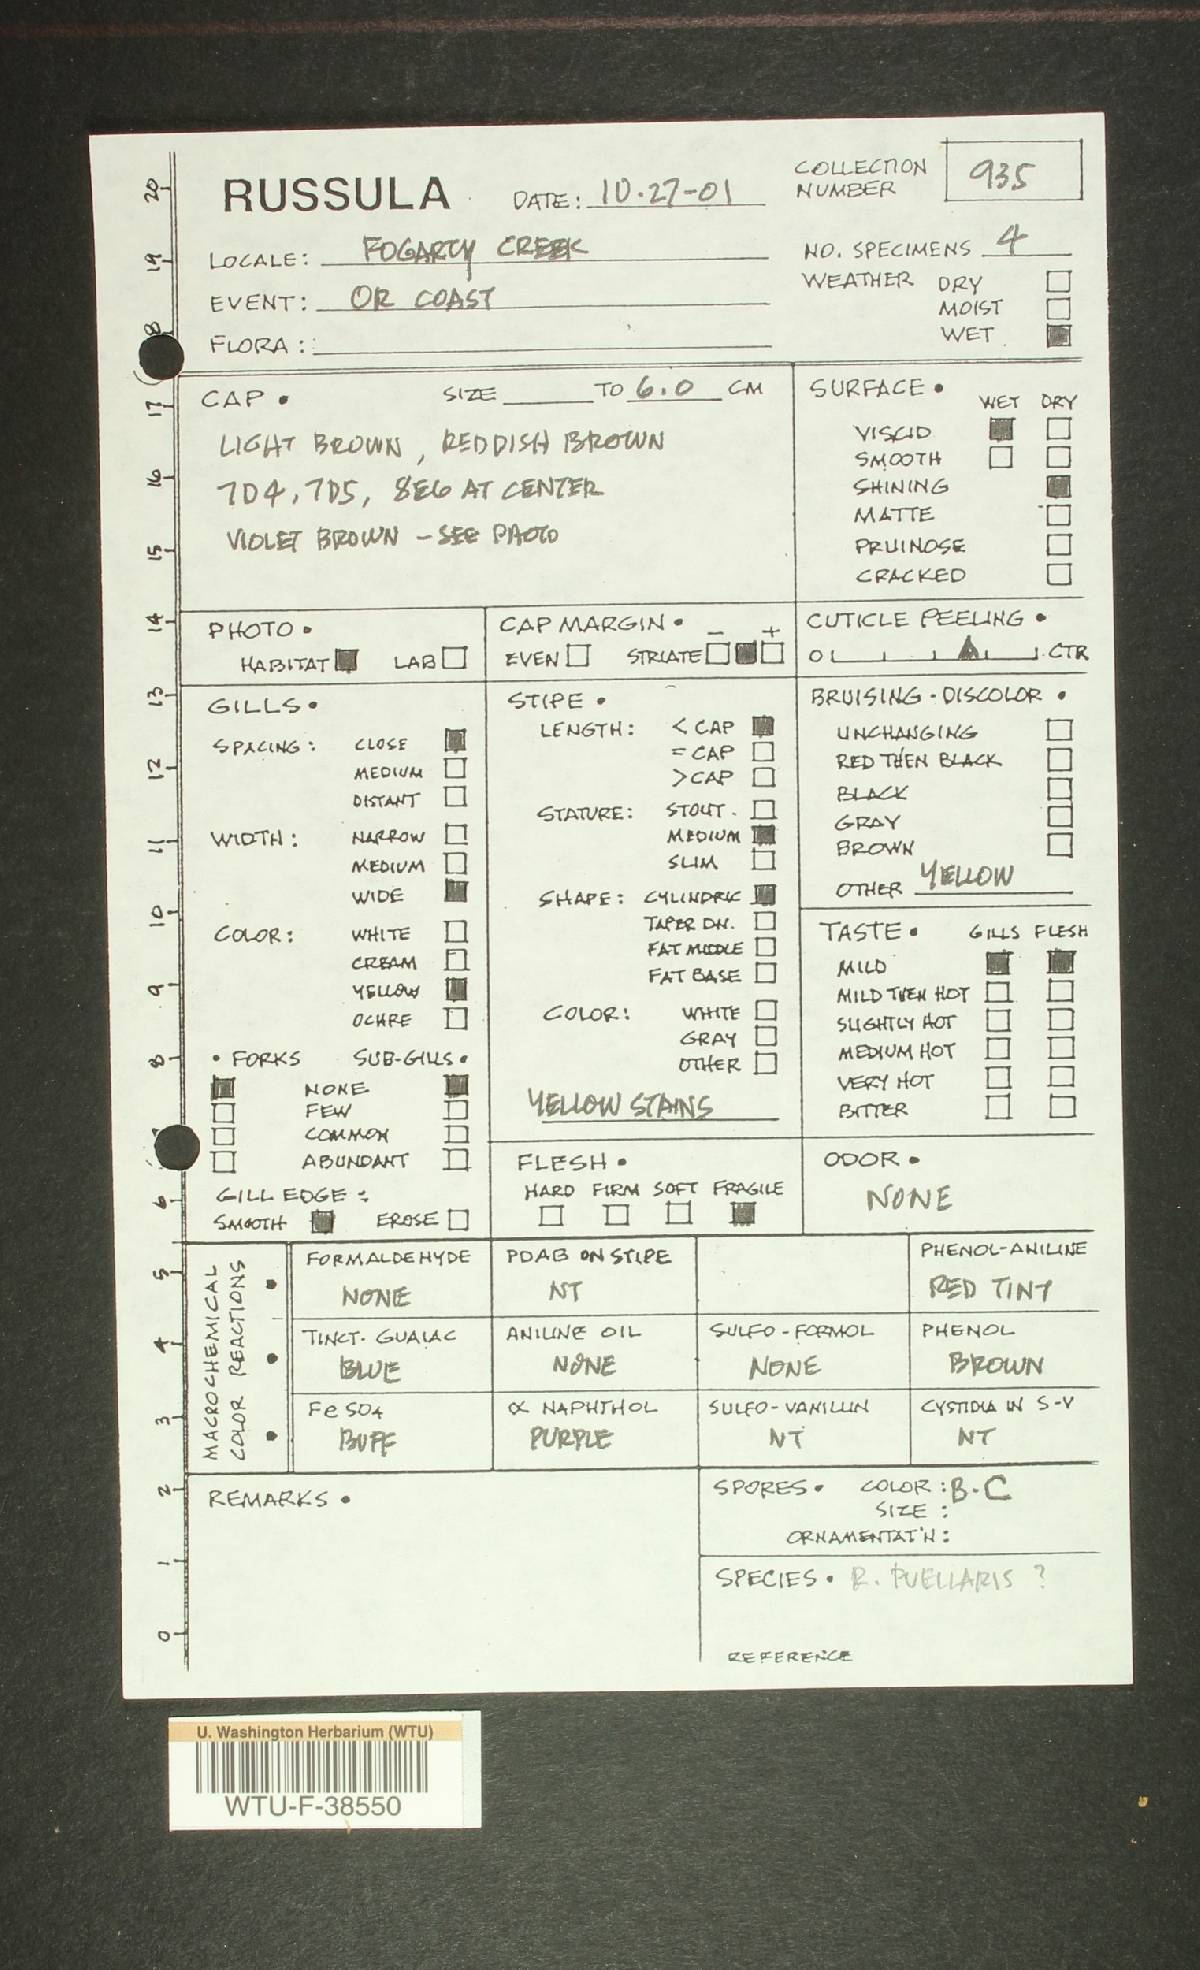 RUSSULA DATE: 10.27-01 COLLECTION NUMBER 935
LOCALE: FOGARTY CREEK NO. SPECIMENS 4
EVENT: OR COAST WEATHER DRY
MOIST
FLORA: WET
CAP • SIZE TO 6.0 CM
LIGHT BROWN, REDDISH BROWN
7D4, 7D5, 8E6 AT CENTER
VIOLET BROWN - SEE PHOTO
SURFACE • WET DRY
VISCID
SMOOTH
SHINING
MATTE
PRUINOSE
CRACKED
PHOTO •
HABITAT LAB
CAP MARGIN • - +
EVEN STRIATE
CUTICLE PEELING •
0 CTR
GILLS •
SPACING: CLOSE
MEDIUM
DISTANT
WIDTH: NARROW
MEDIUM
WIDE
COLOR: WHITE
CREAM
YELLOW
OCHRE
• FORKS SUB-GILLS •
NONE
FEW
COMMON
ABUNDANT
GILL EDGE:
SMOOTH EROSE
STIPE •
LENGTH: < CAP
= CAP
> CAP
STATURE: STOUT.
MEDIUM
SLIM
SHAPE: CYLINDRIC
TAPER DN.
FAT MIDDLE
FAT BASE
COLOR: WHITE
GRAY
OTHER
YELLOW STAINS
FLESH •
HARD FIRM SOFT FRAGILE
BRUISING - DISCOLOR •
UNCHANGING
RED THEN BLACK
BLACK
GRAY
BROWN
OTHER YELLOW
TASTE • GILLS FLESH
MILD
MILD THEN HOT
SLIGHTLY HOT
MEDIUM HOT
VERY HOT
BITTER
ODOR •
NONE
MACROCHEMICAL
COLOR REACTIONS
FORMALDEHYDE PDAB ON STIPE PHENOL-ANILINE
NONE NT RED TINT
TINCT. GUAIAC ANILINE OIL SULFO-FORMOL PHENOL
BLUE NONE NONE BROWN
FeSO4 α NAPHTHOL SULFO-VANILLIN CYSTIDIA IN S-V
BUFF PURPLE NT NT
REMARKS •
SPORES • COLOR: B-C
SIZE:
ORNAMENTAT'N:
SPECIES • R. PUELLARIS ?
REFERENCE
20
19
8
17
16
15
14
13
12
11
10
9
8
6
5
4
3
2
1
0
U. Washington Herbarium (WTU)
WTU-F-38550